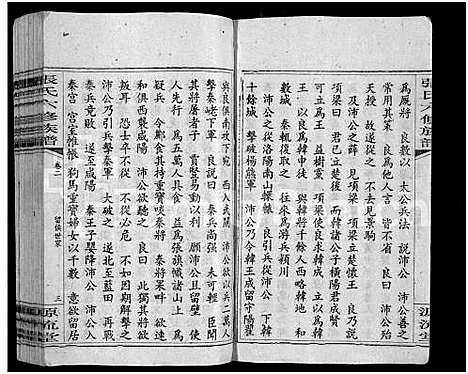 張氏六修族譜
源流堂
為厩將 良數以太公兵法 說沛公 沛公善之
常用其策 良為他人言 皆不省 良曰 沛公殆
天授 故遂從之 不去見景駒
及沛公之薛 見項梁 項梁立楚懷王 良乃說
項梁曰 君已立楚後 而韓諸公子橫陽君成賢
可立為王 益樹黨 項梁使良求韓成 立以為韓
王 與韓王將千餘人西略韓地 得
數城 秦輒復取之 往來為游兵潁川
沛公之從洛陽南出轘轅 良引兵從沛公 下韓
十餘城 擊破楊熊軍 沛公乃令韓王成留守陽翟
與良俱南攻下宛 西入武關 沛公欲以兵二萬人
擊秦嶢下軍 良說曰 秦兵尚强 未可輕 臣聞
其將屠者子 賈竪易動以利 願沛公且留壁 使
人先行 為五萬人具食 益為張旗幟諸山上 為
疑兵 令酈食其持重寶啗秦將 秦將果畔 欲連
和俱西襲咸陽 沛公欲聽之 良曰 此獨其將欲
叛耳 恐士卒不從 不從必危 不如因其解擊之
沛公乃引兵擊秦軍 大破之 遂北至藍田 再戰
秦兵竟敗 遂至咸陽 秦王子嬰降沛公 沛公入
秦宮 宮室帷帳 狗馬重寶婦女以千數 意欲留居
張氏六修族譜 卷二 留侯世家 三 源流堂